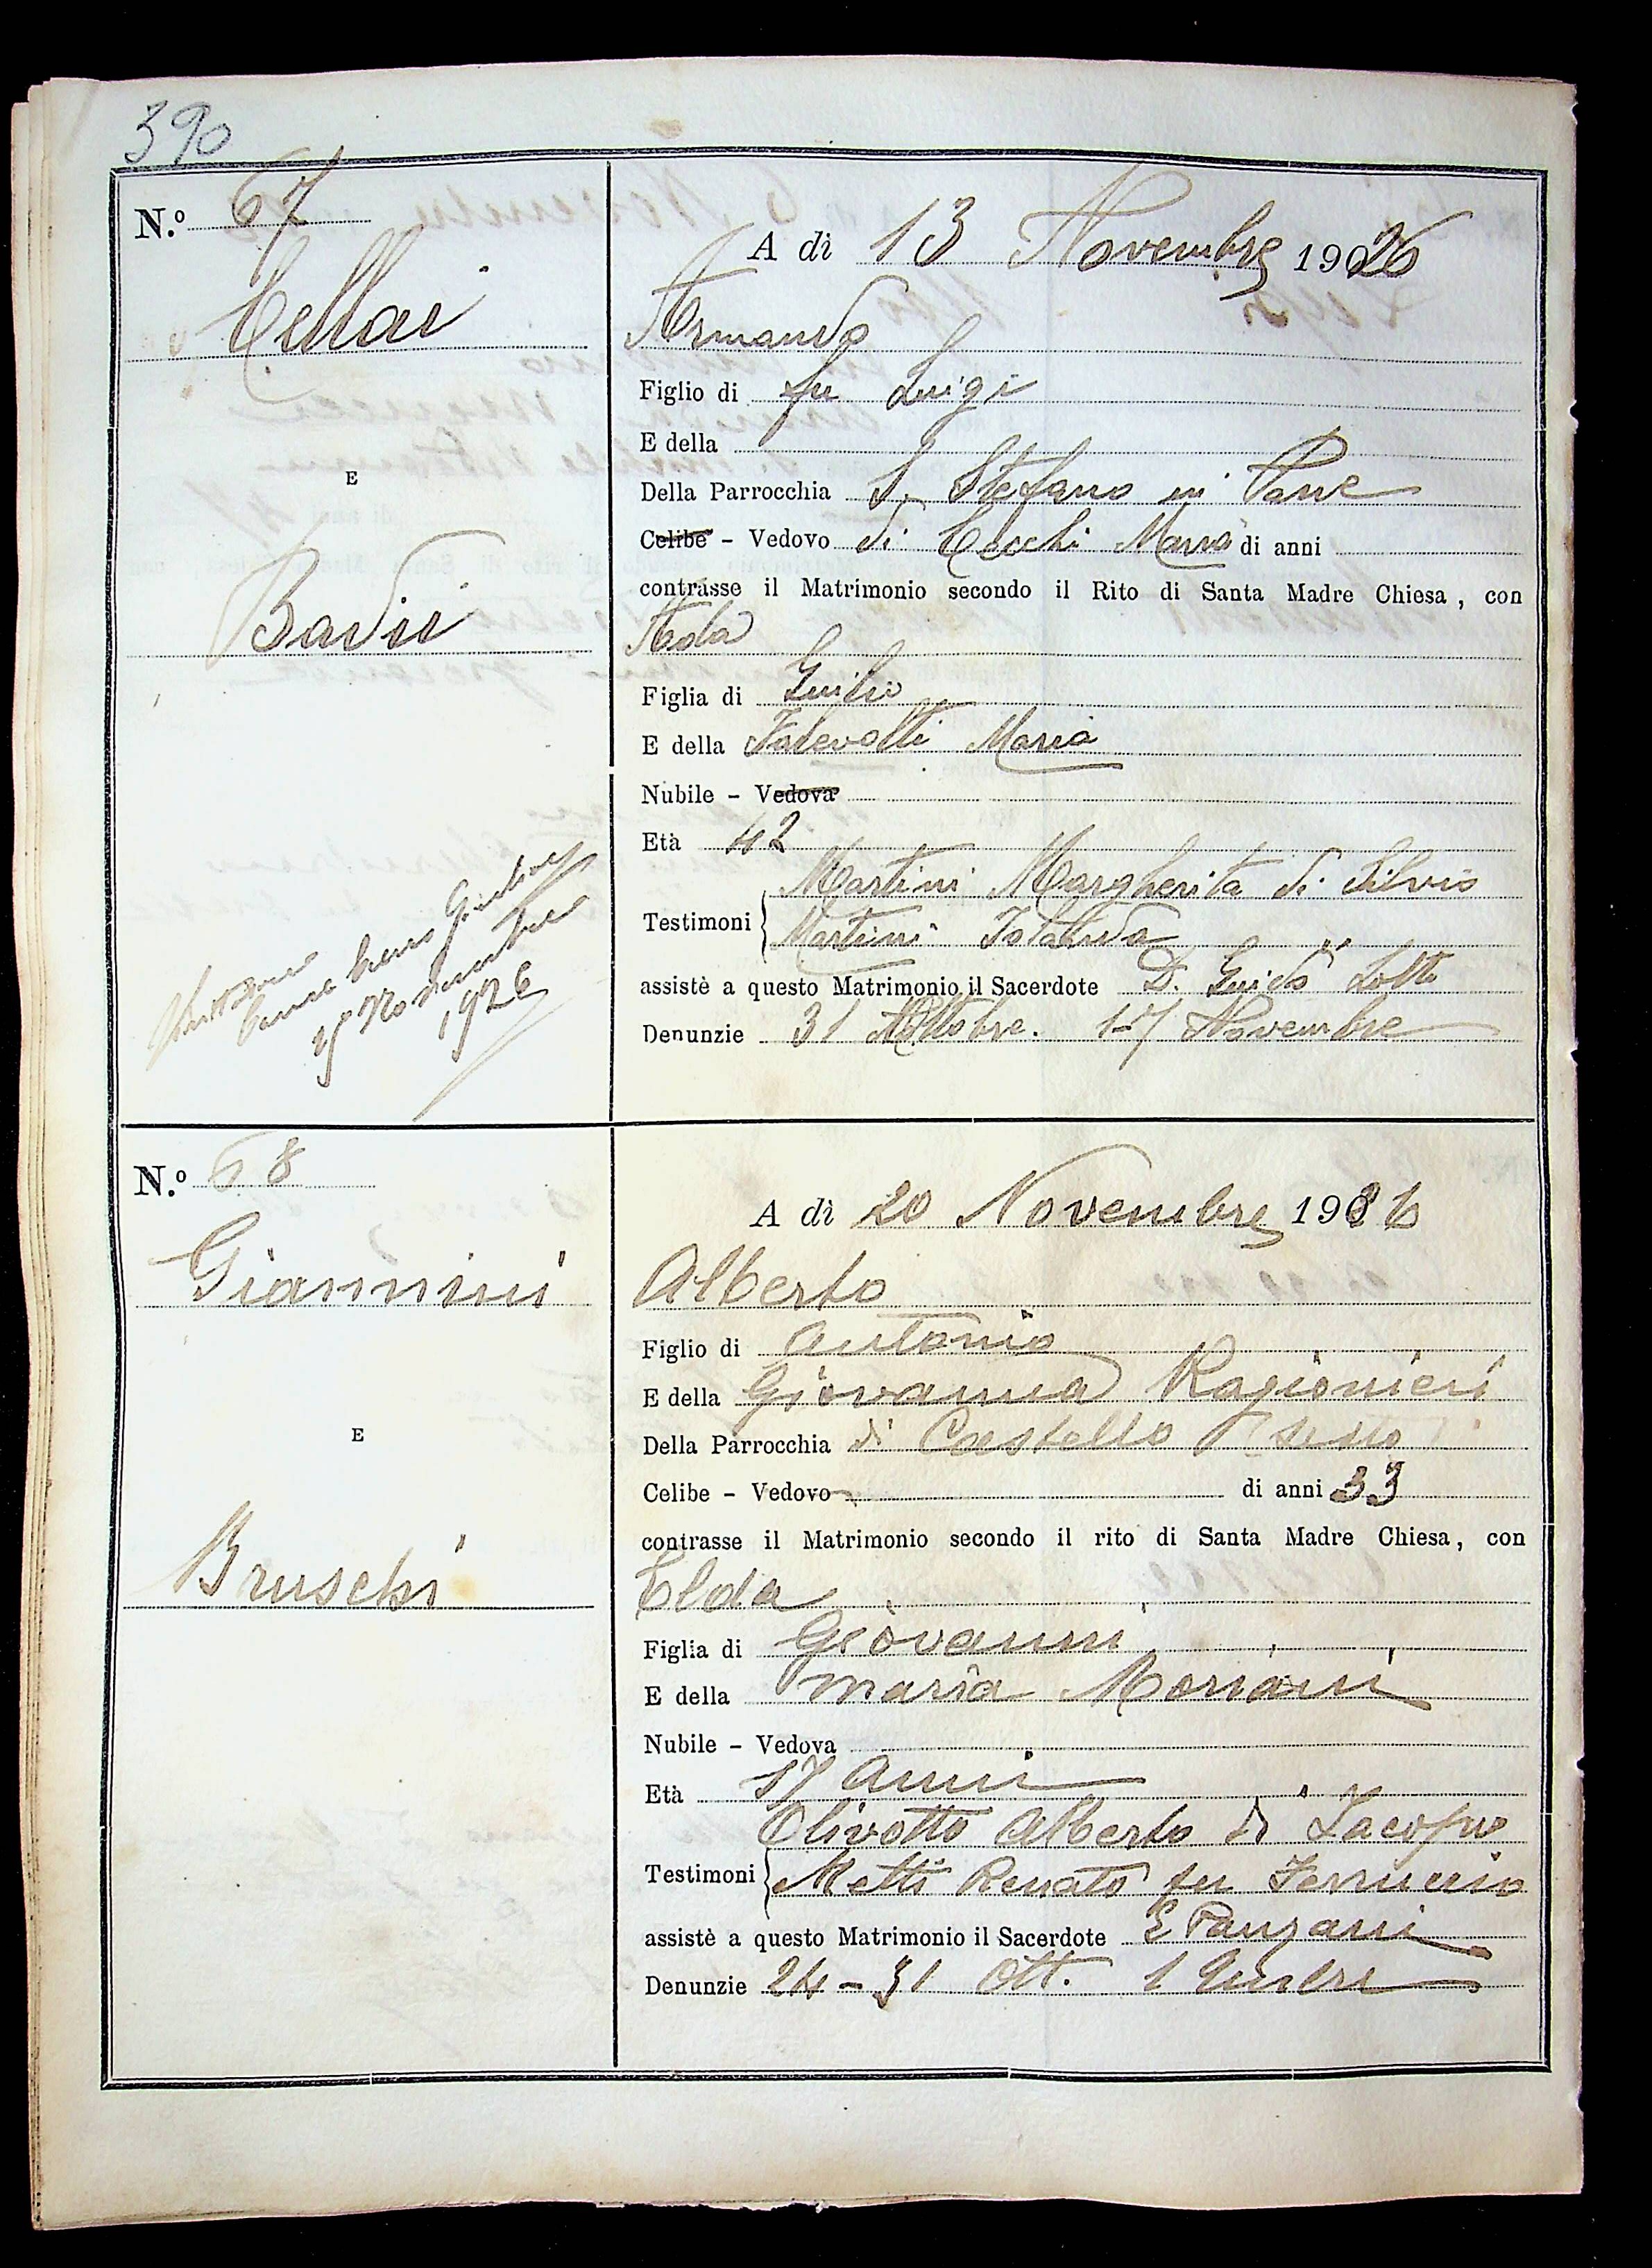 390
N.º 67
A dì 13 Novembre 1926
Cellai
Armando
Figlio di fu Luigi
E della
Della Parrocchia S. Stefano in Pane
E
Celibe - Vedovo di Cecchi Maria di anni
contrasse il Matrimonio secondo il Rito di Santa Madre Chiesa, con
Badii
Ada
Figlia di Guido
E della Falevolti Maria
Nubile - Vedova
Età 42
Martini Margherita di Silvio
Testimoni Martini Iolanda
assistè a questo Matrimonio il Sacerdote D. Guido Lotti
Denunzie 31 Ottobre. 1-7 Novembre
Novembre
1926
N.º 68
A dì 20 Novembre 1926
Giannini
Alberto
Figlio di Antonio
E della Giovanna Ragionieri
Della Parrocchia di Castello Sesto
E
Celibe - Vedovo di anni 33
contrasse il Matrimonio secondo il rito di Santa Madre Chiesa, con
Bruschi
Elda
Figlia di Giovanni
E della Maria Moriani
Nubile - Vedova
Età 17 Anni
Olivotto Alberto di Iacopo
Testimoni Metti Renato fu Ferruccio
assistè a questo Matrimonio il Sacerdote E Panzani
Denunzie 24 - 31 Ott. 1